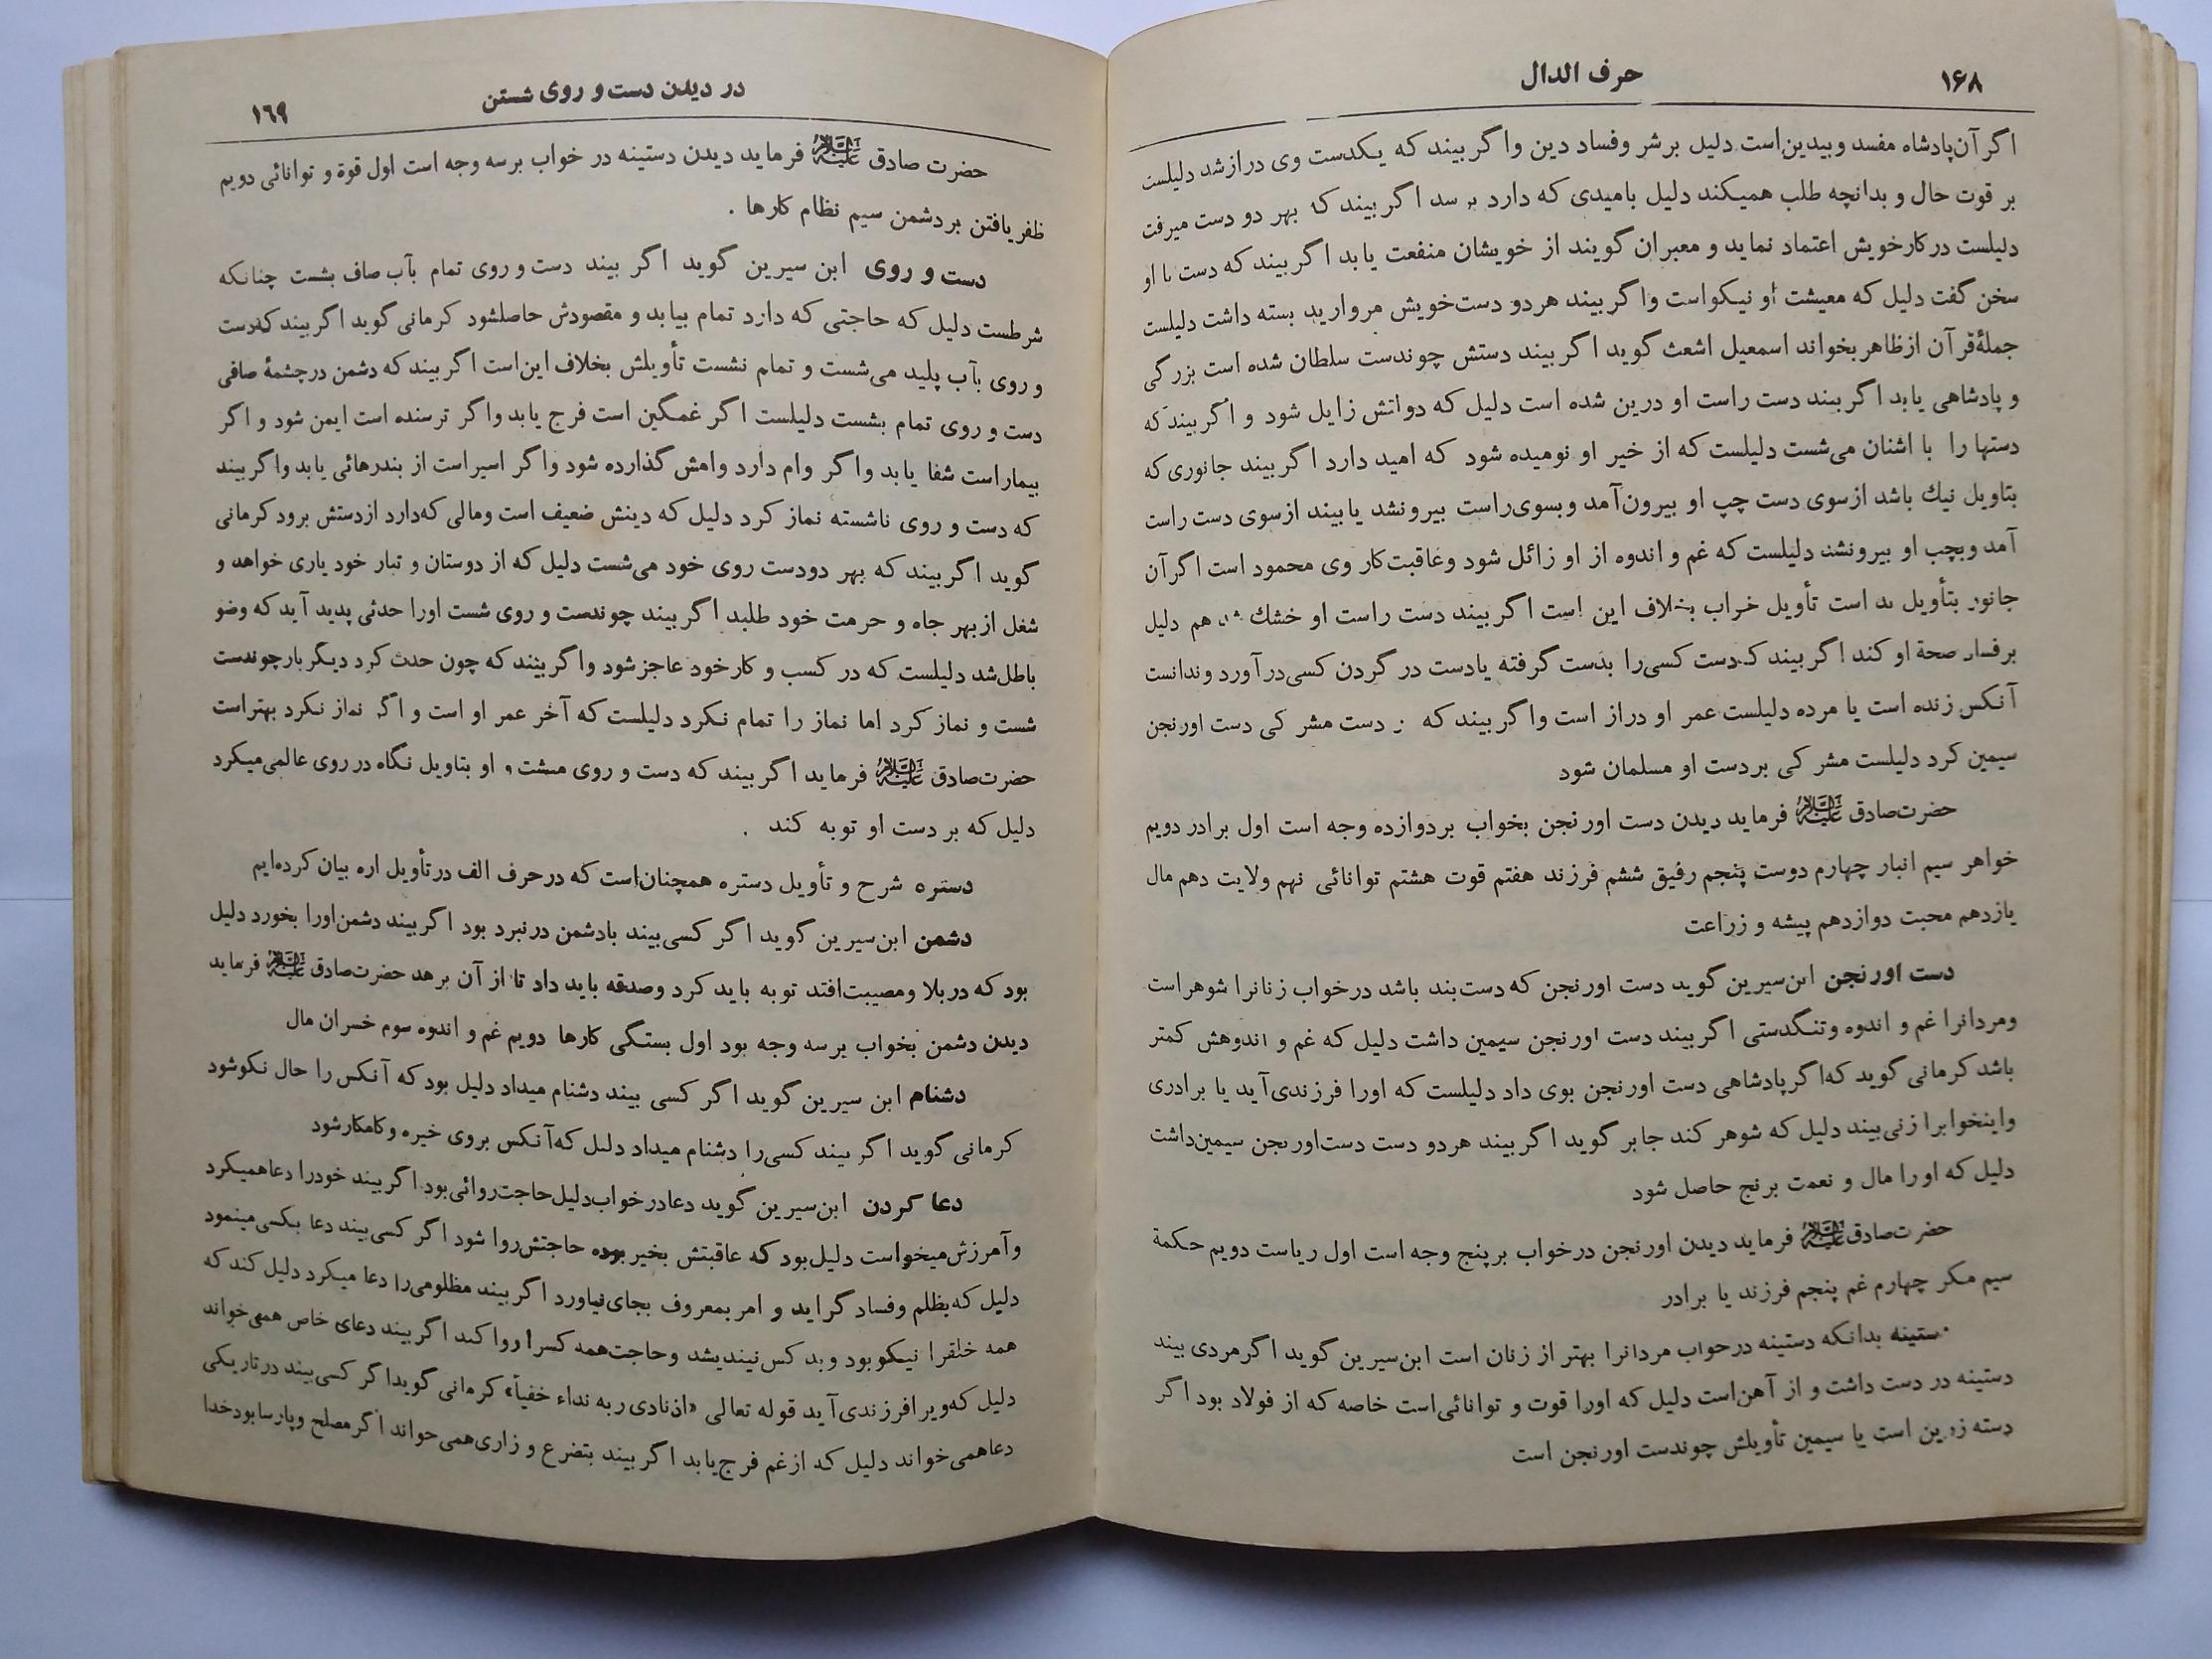 ۱۶۸
حرف الدال
اگر آن‌پادشاه مفسد وبیدین‌است دلیل برشر وفساد دین واگر بیند که یکدست وی درازشد دلیلست
بر قوت حال و بدانچه طلب همیکند دلیل بامیدی که دارد برسد اگر بیند که بهر دو دست میرفت
دلیلست درکارخویش اعتماد نماید و معبران گویند از خویشان منفعت یابد اگر بیند که دست با او
سخن گفت دلیل که معیشت او نیکواست واگر بیند هردو دست‌خویش مروارید بسته داشت دلیلست
جملۀقرآن ازظاهر بخواند اسمعیل اشعث گوید اگر بیند دستش چوندست سلطان شده است بزرگی
و پادشاهی یابد اگر بیند دست راست او درین شده است دلیل که دولتش زایل شود و اگر بیند که
دستها را با اشنان می‌شست دلیلست که از خیر او نومیده شود که امید دارد اگر بیند جانوری که
بتاویل نیك باشد ازسوی دست چپ او بیرون‌آمد وبسوی‌راست بیرونشد یابیند ازسوی دست راست
آمد وبچپ او بیرونشد دلیلست که غم و اندوه از او زائل شود وعاقبت‌کار وی محمود است اگر آن
جانور بتأویل بد است تأویل خراب بخلاف این است اگر بیند دست راست او خشك شد هم دلیل
برفساد صحة او کند اگر بیند که‌دست کسی‌را بدست گرفته یادست در گردن کسی‌درآورد وندانست
آنکس زنده است یا مرده دلیلست عمر او دراز است واگر بیند که دست مشرکی دست اورنجن
سیمین کرد دلیلست مشرکی بردست او مسلمان شود
حضرت‌صادق علیه السلام فرماید دیدن دست اورنجن بخواب بردوازده وجه است اول برادر دویم
خواهر سیم انبار چهارم دوست پنجم رفیق ششم فرزند هفتم قوت هشتم توانائی نهم ولایت دهم مال
یازدهم محبت دوازدهم پیشه و زراعت
دست اورنجن ابن‌سیرین گوید دست اورنجن که دست‌بند باشد درخواب زنانرا شوهراست
ومردانرا غم و اندوه وتنگدستی اگر بیند دست اورنجن سیمین داشت دلیل که غم و اندوهش کمتر
باشد کرمانی گوید که‌اگر پادشاهی دست اورنجن بوی داد دلیلست که اورا فرزندی‌آید یا برادری
واینخوابرا زنی‌بیند دلیل که شوهر کند جابر گوید اگر بیند هردو دست دست‌اورنجن سیمین‌داشت
دلیل که اورا مال و نعمت برنج حاصل شود
حضرت‌صادق علیه السلام فرماید دیدن اورنجن درخواب برپنج وجه است اول ریاست دویم حکمة
سیم مکر چهارم غم پنجم فرزند یا برادر
دستینه بدانکه دستینه درخواب مردانرا بهتر از زنان است ابن‌سیرین گوید اگرمردی بیند
دستینه در دست داشت و از آهن‌است دلیل که اورا قوت و توانائی‌است خاصه که از فولاد بود اگر
دسته زرین است یا سیمین تأویلش چوندست اورنجن است
در دیدن دست و روی شستن
۱۶۹
حضرت صادق علیه السلام فرماید دیدن دستینه در خواب برسه وجه است اول قوة و توانائی دویم
ظفریافتن بردشمن سیم نظام کارها .
دست و روی ابن سیرین گوید اگر بیند دست و روی تمام بآب صاف بشست چنانکه
شرطست دلیل که حاجتی که دارد تمام بیابد و مقصودش حاصلشود کرمانی گوید اگر بیند که‌دست
و روی بآب پلید می‌شست و تمام نشست تأویلش بخلاف این‌است اگر بیند که دشمن درچشمۀ صافی
دست و روی تمام بشست دلیلست اگر غمگین است فرج یابد واگر ترسنده است ایمن شود و اگر
بیماراست شفا یابد واگر وام دارد وامش گذارده شود واگر اسیراست از بندرهائی یابد واگر بیند
که دست و روی ناشسته نماز کرد دلیل که دینش ضعیف است ومالی که‌دارد ازدستش برود کرمانی
گوید اگر بیند که بهر دودست روی خود می‌شست دلیل که از دوستان و تبار خود یاری خواهد و
شغل ازبهر جاه و حرمت خود طلبد اگر بیند چوندست و روی شست اورا حدثی پدید آید که وضو
باطل‌شد دلیلست که در کسب و کارخود عاجز شود واگر بینند که چون حدث کرد دیگر بارچوندست
شست و نماز کرد اما نماز را تمام نکرد دلیلست که آخر عمر او است و اگر نماز نکرد بهتراست
حضرت‌صادق علیه السلام فرماید اگر بیند که دست و روی مشت و او بتاویل نگاه در روی عالمی‌میکرد
دلیل که بر دست او توبه کند .
دستره شرح و تأویل دستره همچنان‌است که درحرف الف درتأویل اره بیان کرده‌ایم
دشمن ابن‌سیرین گوید اگر کسی‌بیند بادشمن درنبرد بود اگر بیند دشمن‌اورا بخورد دلیل
بود که دربلا ومصیبت‌افتد توبه باید کرد وصدقه باید داد تا از آن برهد حضرت‌صادق علیه السلام فرماید
دیدن دشمن بخواب برسه وجه بود اول بستگی کارها دویم غم و اندوه سوم خسران مال
دشنام ابن سیرین گوید اگر کسی بیند دشنام میداد دلیل بود که آنکس را حال نکوشود
کرمانی گوید اگر بیند کسی‌را دشنام میداد دلیل که‌آنکس بروی خیره وکامکارشود
دعا کردن ابن‌سیرین گوید دعادرخواب‌دلیل‌حاجت‌روائی‌بود اگر بیند خودرا دعاهمیکرد
وآمرزش‌میخواست دلیل‌بود که عاقبتش بخیر بوده حاجتش‌روا شود اگر کسی‌بیند دعا بکسی‌مینمود
دلیل که‌بظلم وفساد گراید و امر بمعروف بجای‌نیاورد اگر بیند مظلومی‌را دعا میکرد دلیل کند که
همه خلقرا نیکو بود وبد کس‌نیندیشد وحاجت‌همه کسرا روا کند اگر بیند دعای خاص همی‌خواند
دلیل که‌ویرا فرزندی‌آید قوله تعالی «اذنادی ربه نداء خفیا» کرمانی گویداگر کسی‌بیند درتاریکی
دعاهمی‌خواند دلیل که ازغم فرج‌یابد اگر بیند بتضرع و زاری‌همی‌خواند اگرمصلح وپارسابودخدا